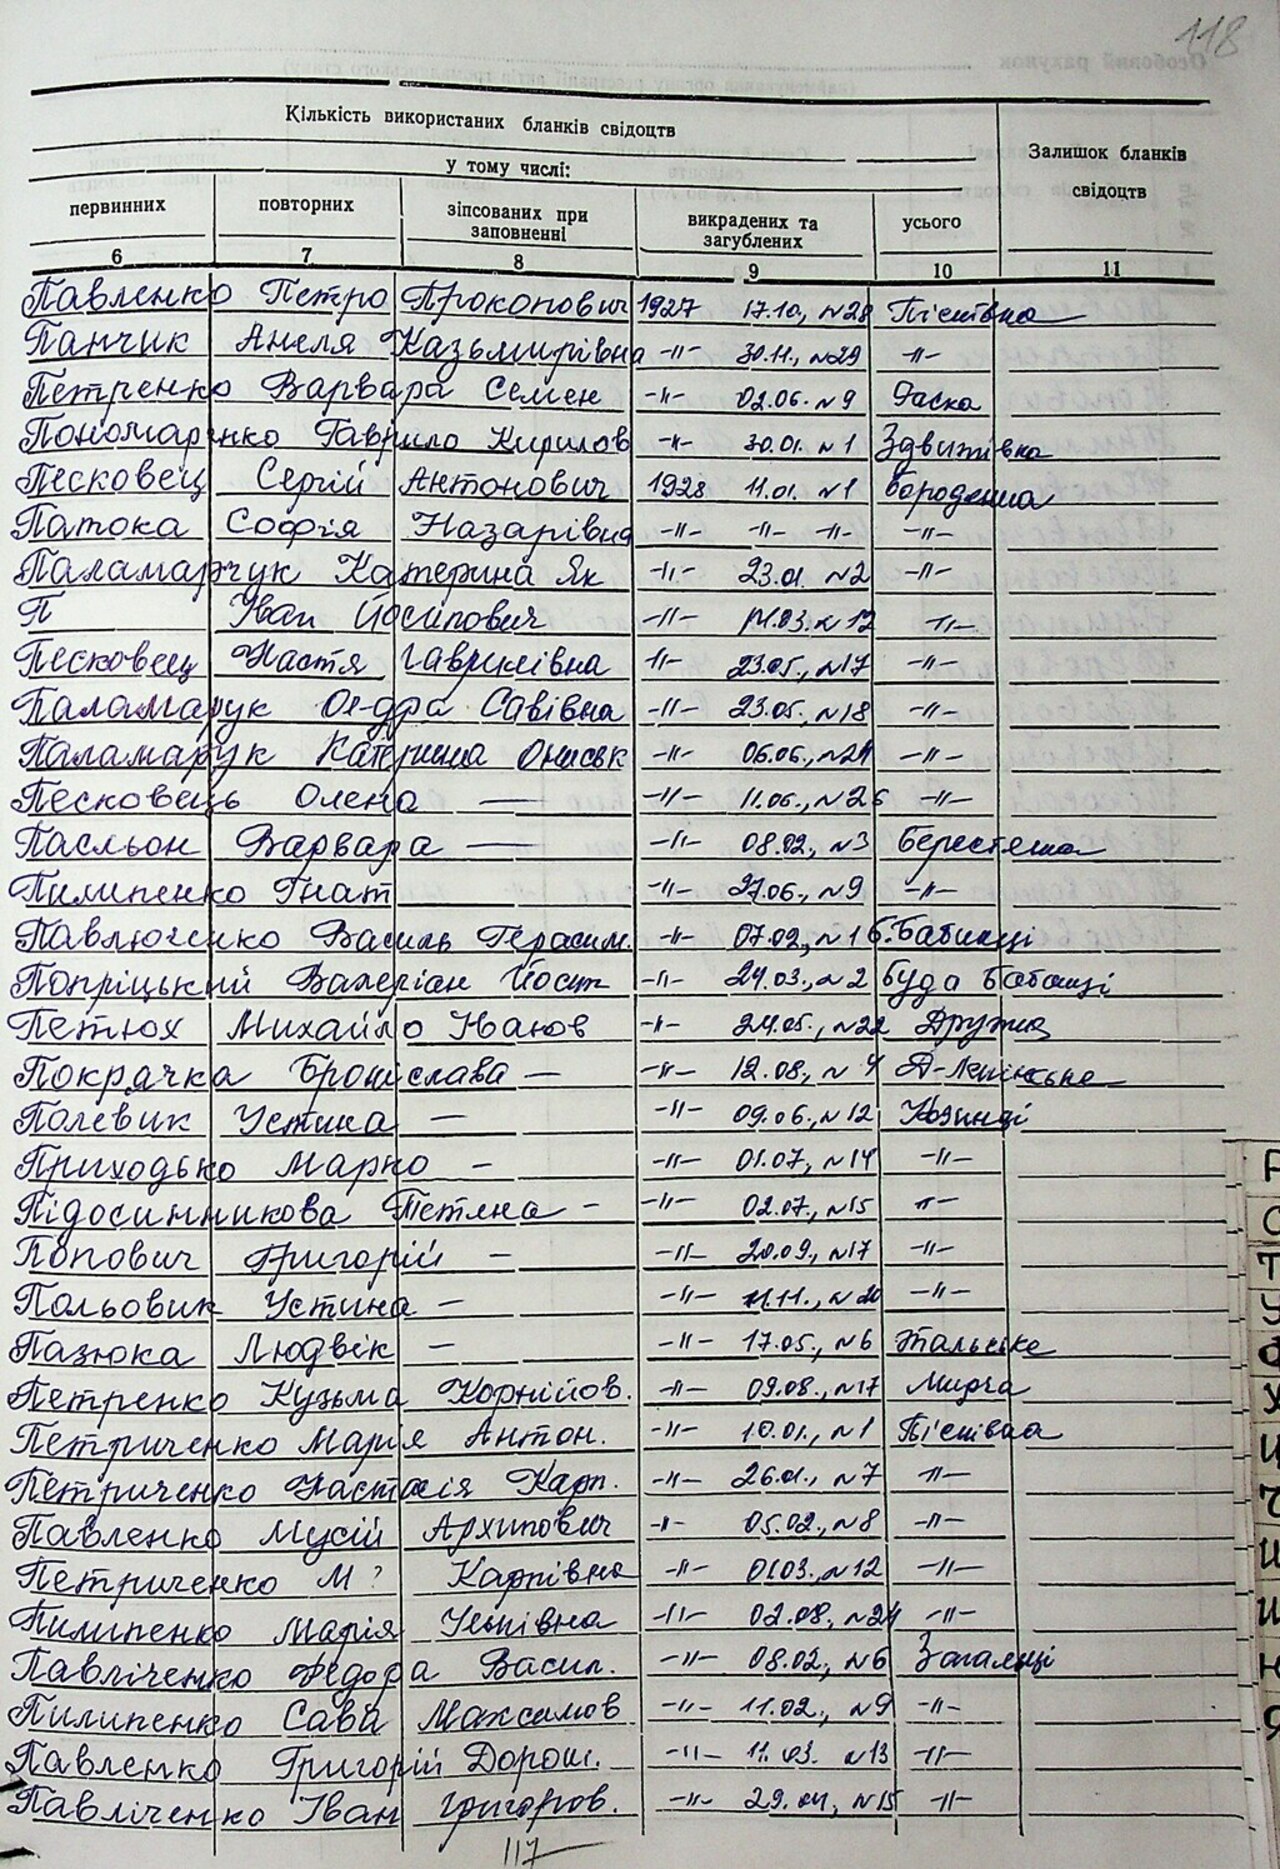 118
Кількість використаних бланків свідоцтв
у тому числі:
Залишок бланків свідоцтв
первинних повторних зіпсованих при заповненні викрадених та загублених усього
6 7 8 9 10 11
Павленко Петро Прокопович 1927 17.10, №28
Панчик Анеля Казьмирівна -"- 30.11., №29 -"-
Петренко Варвара Семен -"- 02.06. №9 Раска
Пономаренко Гаврило Кирилов -"- 30.01. №1 Здвижівка
Песковец Сергій Антонович 1928 11.01. №1 Бородянка
Патока Софія Назарівна -"- -"- -"- -"-
Паламарчук Катерина Як -"- 23.01. №2 -"-
П Іван Йосипович -"- 14.03. №12 -"-
Песковец Настя Гаврилівна -"- 23.05., №17 -"-
Паламарук Ол-дра Савівна -"- 23.05., №18 -"-
Паламарук Катерина Ониськ -"- 06.06., №24 -"-
Песковець Олена — -"- 11.06., №26 -"-
Пасльон Варвара — -"- 08.02., №3 Берестянка
Пилипенко Гнат -"- 27.06., №9 -"-
Павлюченко Василь Герасим. -"- 07.02., №1 Б.Бабинці
Попріцький Валеріан Йосип -"- 24.03., №2 Буда Бабинці
Петюх Михайло Іванов -"- 24.05., №22 Дружня
Покрачка Броніслава — -"- 12.08., №4 Д-Ленінське
Полевик Устина — -"- 09.06., №12 Козинці
Приходько Марко — -"- 01.07, №14 -"-
Підосинникова Тетяна — -"- 02.07., №15 -"-
Попович Григорій — -"- 20.09., №17 -"-
Польовик Устина — -"- 11.11., №20 -"-
Пазюка Людвік — -"- 17.05., №6 Тальське
Петренко Кузьма Корнійов. -"- 09.08., №17 Мирча
Петриченко Марія Антон. -"- 10.01., №1
Петриченко Настасія Карп. -"- 26.01., №7 -"-
Павленко Мусій Архипович -"- 05.02., №8 -"-
Петриченко М? Карпівна -"- 01.03., №12 -"-
Пилипенко Марія -"- 02.08, №24 -"-
Павліченко Федора Васил. -"- 08.02., №6 Загальці
Пилипенко Сава Максимов -"- 11.02., №9 -"-
Павленко Григорій Дорош. -"- 11.03. №13 -"-
Павліченко Іван Григоров. -"- 29.04, №15 -"-
117